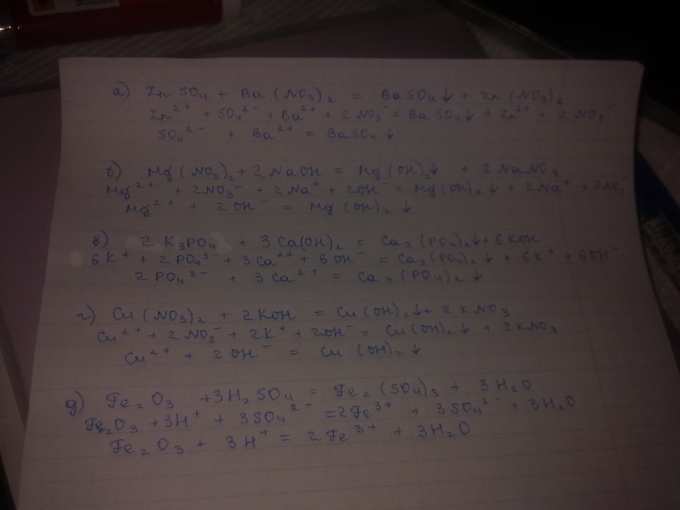 а) ZnSO4 + Ba(NO3)2 = BaSO4↓ + Zn(NO3)2
Zn2+ + SO4 2- + Ba2+ + 2NO3- = BaSO4↓ + Zn2+ + 2NO3-
SO4 2- + Ba2+ = BaSO4↓
б) Mg(NO3)2 + 2NaOH = Mg(OH)2↓ + 2NaNO3
Mg2+ + 2NO3- + 2Na+ + 2OH- = Mg(OH)2↓ + 2Na+ + 2NO3-
Mg2+ + 2OH- = Mg(OH)2↓
в) 2K3PO4 + 3Ca(OH)2 = Ca3(PO4)2↓ + 6KOH
6K+ + 2PO4 3- + 3Ca2+ + 6OH- = Ca3(PO4)2↓ + 6K+ + 6OH-
2PO4 3- + 3Ca2+ = Ca3(PO4)2↓
г) Cu(NO3)2 + 2KOH = Cu(OH)2↓ + 2KNO3
Cu2+ + 2NO3- + 2K+ + 2OH- = Cu(OH)2↓ + 2KNO3
Cu2+ + 2OH- = Cu(OH)2↓
д) Fe2O3 + 3H2SO4 = Fe2(SO4)3 + 3H2O
Fe2O3 + 3H+ + 3SO4 2- = 2Fe3+ + 3SO4 2- + 3H2O
Fe2O3 + 3H+ = 2Fe3+ + 3H2O